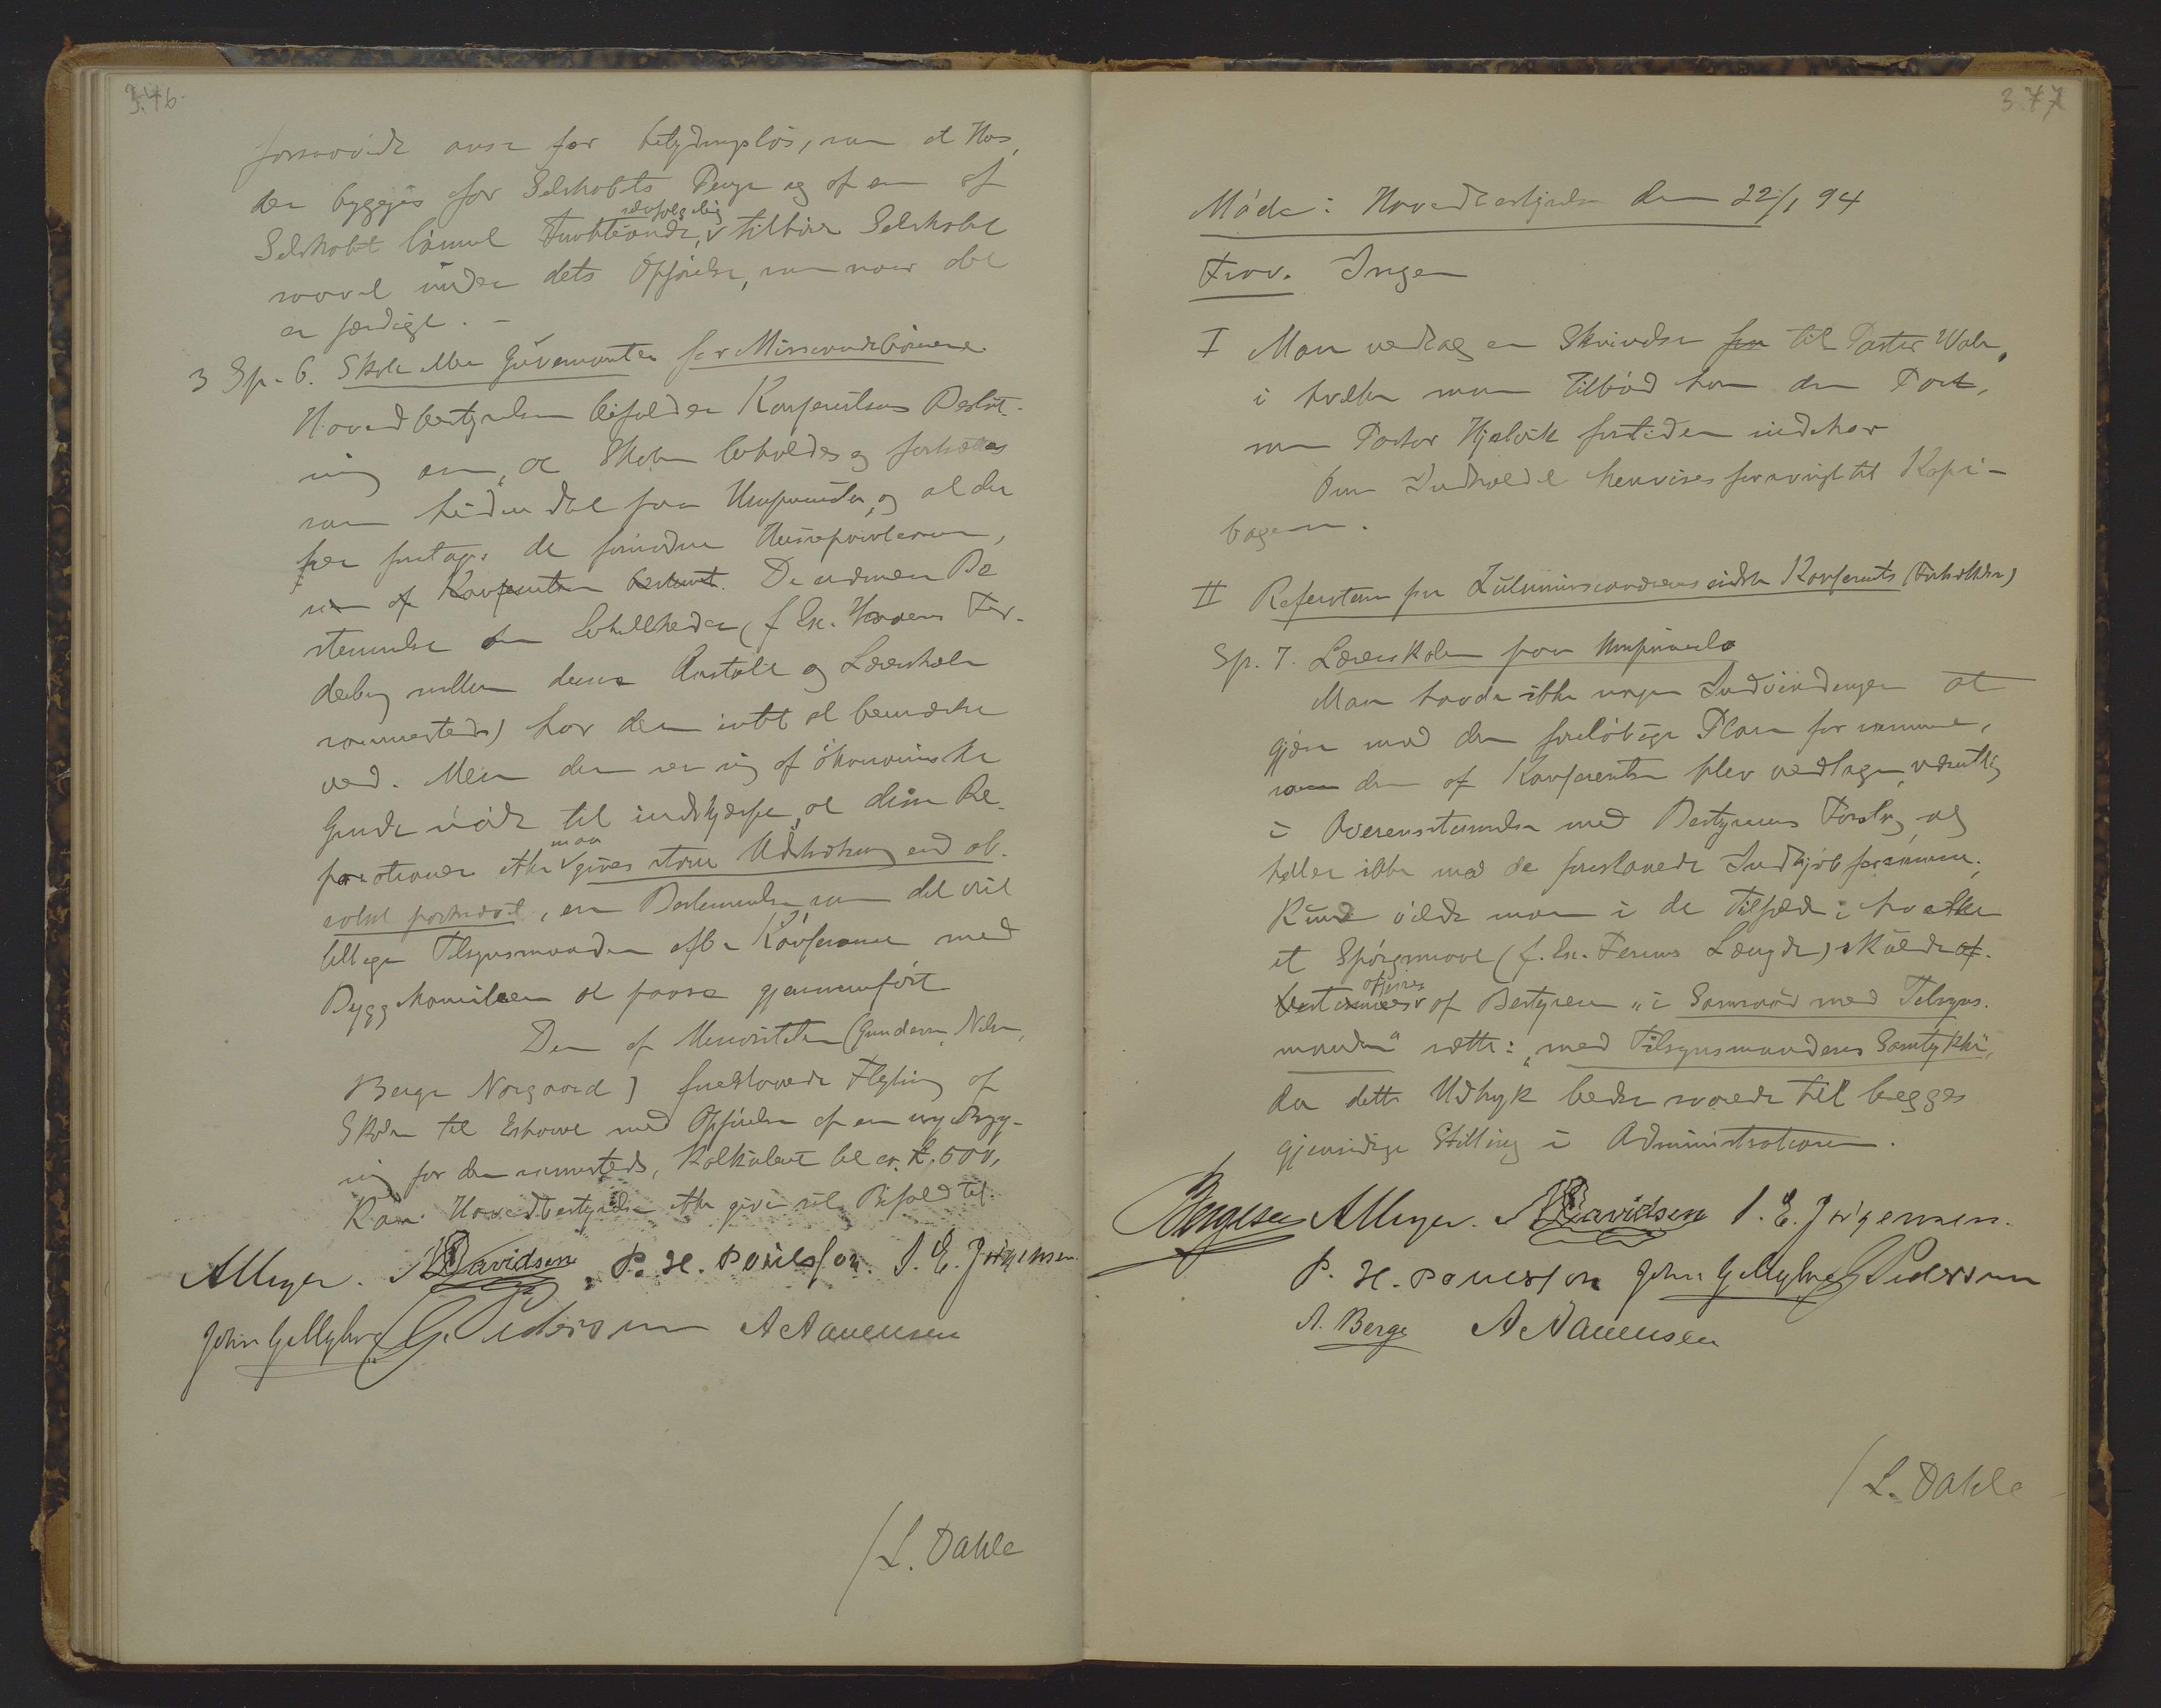 376.
forsaavidt anse for betydningsløs, som et Hus,
der bygges for Selskabets Penge og af en af
Selskabet lønnet Funktionær, selvfølgelig tilhører Selskabet
saavel under dets Opførelse, som naar det
er færdigt. –
3 Sp. 6. Skole eller Guvernante for Missionærbørnene.
Hovedbestyrelsen bifalder Konferentsens Beslut-
ning om, at Skolen beholdes og fortsættes
som hidindtil paa Umpumulo, og at der
her foretages de fornødne Husreparationer,
som af Konferentsen bestemt. De nærmere Be
stemmelser om Enkeltheder (f. Ex. Havens For-
deling mellem denne Anstalt og Lærerskolen
sammesteds) har den intet at bemærke
ved. Men den ser sig af økonomiske
Grunde nødt til indskjærpe, at disse Re-
parationer ikke maa gives større Udstrækning end ab-
solut paakrævet, en Bestemmelse som det vil
tillige Tilsynsmanden efter Konferance med
Byggekomiteen at paase gjennemført
Den af Minoriteten (Gundersen, Nilsen,
Berge Norgaard) foreslaaede Flytning af
Skolen til Eshowe med Opførelse af en ny Byg-
ning for den sammesteds, kalkuleret til ca. £. 500,
kan Hovedbestyrelsen ikke give sit Bifald til.
AMeyer. NDavidsen. P. H. Poulsson. S. E. Jørgensen.
John G. Myhre G. Pedersen A Aanensen
/L. Dahle
377
Møde i Hovedbestyrelsen den 22/1 94
Frav. Ingen
I Man vedtog en Skrivelse fra til Pastor Wale,
i hvilken man tilbød ham den Post,
som Pastor Hjelvik fortiden indehar
Om Indholdet henvises forøvrigt til Kopi-
bogen.
II Referatene fra Zulumissionærernes sidste Konferents (Fortsættelse)
Sp. 7. Lærerskolen paa Umpumulo
Man havde ikke nogen Indvendinger at
gjøre mod den foreløbige Plan for samme,
som den af Konferentsen blev vedtagen, væsentlig
i Overensstemmelse med Bestyrerens Forslag og
heller ikke mod de foreslaaede Indkjøb for samme.
Kun vilde man i de Tilfælde i hvilke
et Spørgsmaal (f. Ex. Feriens Længde) skulde af-
bestemmes afgjøres af Bestyreren "i Samraad med Tilsyns-
manden" sætte: "med Tilsynsmandens Samtykke",
da dette Udtryk bedre svarede til begges
gjensidige Stilling i Administrationen.
Borgesen AMeyer. NDavidsen S. E. Jørgensen.
P. H. Poulsson John G. Myhre G Pedersen
A. Berge A Aanensen
/L. Dahle